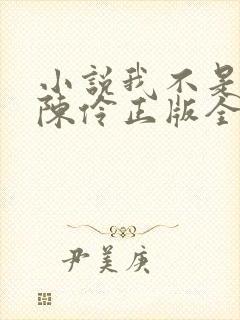 小說我不是
陳伶正版全
尹美庚